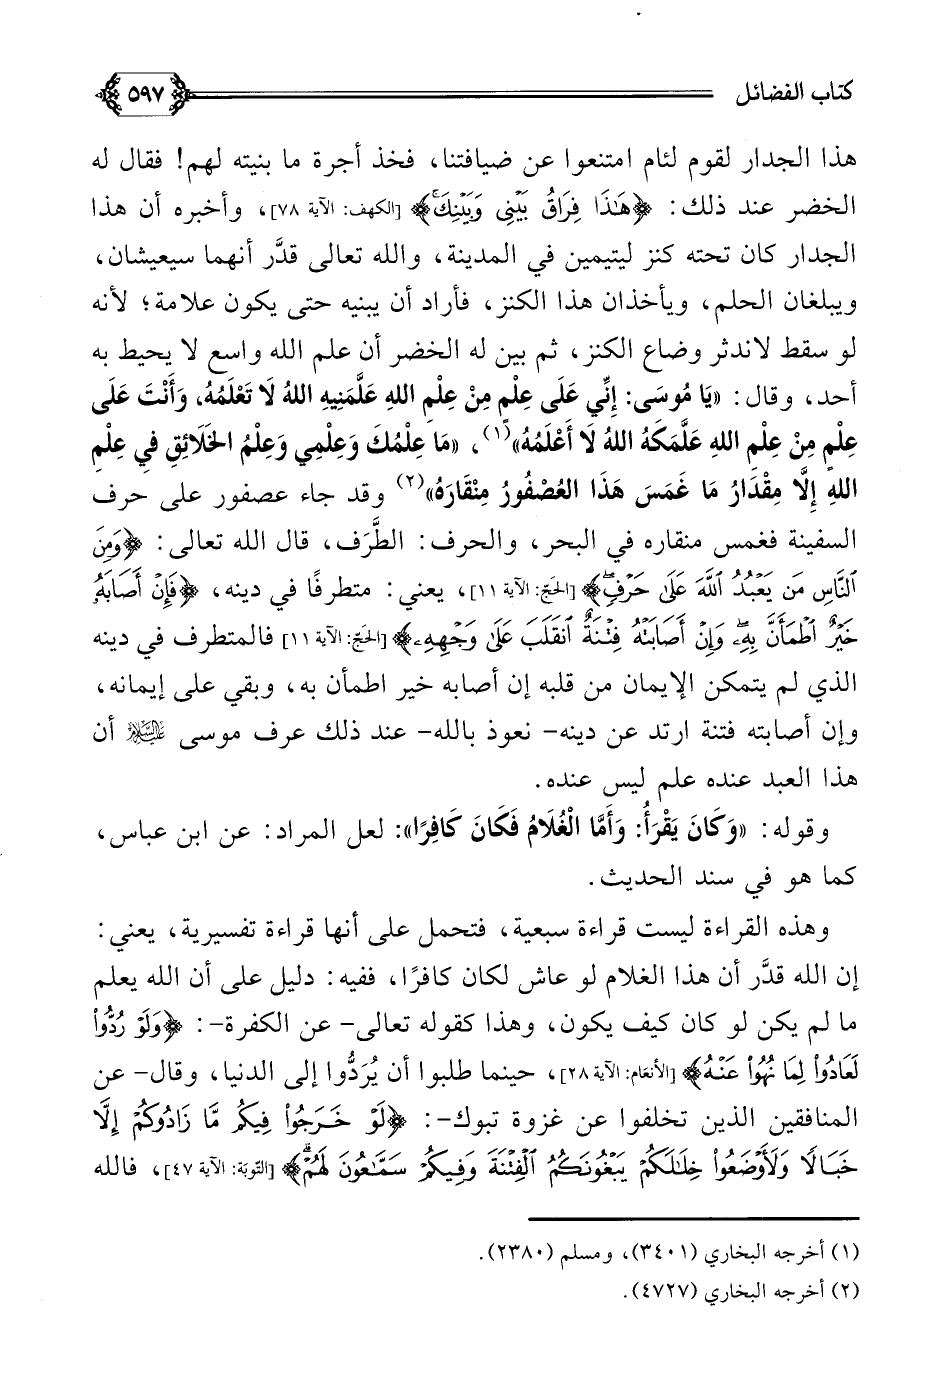 كتاب الفضائل
٥٩٧
هذا الجدار لقوم لئام امتنعوا عن ضيافتنا، فخذ أجرة ما بنيته لهم! فقال له
الخضر عند ذلك: ﴿هَٰذَا فِرَاقُ بَيْنِي وَبَيْنِكَۚ﴾ [الكهف: الآية ٧٨]، وأخبره أن هذا
الجدار كان تحته كنز ليتيمين في المدينة، والله تعالى قدَّر أنهما سيعيشان،
ويبلغان الحلم، ويأخذان هذا الكنز، فأراد أن يبنيه حتى يكون علامة؛ لأنه
لو سقط لاندثر وضاع الكنز، ثم بين له الخضر أن علم الله واسع لا يحيط به
أحد، وقال: «يَا مُوسَى: إِنِّي عَلَى عِلْمٍ مِنْ عِلْمِ اللهِ عَلَّمَنِيهِ اللهُ لَا تَعْلَمُهُ، وَأَنْتَ عَلَى
عِلْمٍ مِنْ عِلْمِ اللهِ عَلَّمَكَهُ اللهُ لَا أَعْلَمُهُ»(١)، «مَا عِلْمُكَ وَعِلْمِي وَعِلْمُ الخَلَائِقِ فِي عِلْمِ
اللهِ إِلَّا مِقْدَارُ مَا غَمَسَ هَذَا العُصْفُورُ مِنْقَارَهُ»(٢) وقد جاء عصفور على حرف
السفينة فغمس منقاره في البحر، والحرف: الطَّرَف، قال الله تعالى: ﴿وَمِنَ
ٱلنَّاسِ مَن يَعْبُدُ ٱللَّهَ عَلَىٰ حَرْفٖۖ﴾ [الحَجّ: الآية ١١]، يعني: متطرفًا في دينه، ﴿فَإِنْ أَصَابَهُۥ
خَيْرٌ ٱطْمَأَنَّ بِهِۦۖ وَإِنْ أَصَابَتْهُ فِتْنَةٌ ٱنقَلَبَ عَلَىٰ وَجْهِهِۦ﴾ [الحَجّ: الآية ١١] فالمتطرف في دينه
الذي لم يتمكن الإيمان من قلبه إن أصابه خير اطمأن به، وبقي على إيمانه،
وإن أصابته فتنة ارتد عن دينه- نعوذ بالله- عند ذلك عرف موسى عليه السلام أن
هذا العبد عنده علم ليس عنده.
وقوله: «وَكَانَ يَقْرَأُ: وَأَمَّا الْغُلَامُ فَكَانَ كَافِرًا»: لعل المراد: عن ابن عباس،
كما هو في سند الحديث.
وهذه القراءة ليست قراءة سبعية، فتحمل على أنها قراءة تفسيرية، يعني:
إن الله قدَّر أن هذا الغلام لو عاش لكان كافرًا، ففيه: دليل على أن الله يعلم
ما لم يكن لو كان كيف يكون، وهذا كقوله تعالى- عن الكفرة-: ﴿وَلَوْ رُدُّواْ
لَعَادُواْ لِمَا نُهُواْ عَنْهُ﴾ [الأنعَام: الآية ٢٨]، حينما طلبوا أن يُرَدُّوا إلى الدنيا، وقال- عن
المنافقين الذين تخلفوا عن غزوة تبوك-: ﴿لَوْ خَرَجُواْ فِيكُم مَّا زَادُوكُمْ إِلَّا
خَبَالًا وَلَأَوْضَعُواْ خِلَٰلَكُمْ يَبْغُونَكُمُ ٱلْفِتْنَةَ وَفِيكُمْ سَمَّٰعُونَ لَهُمْۗ﴾ [التّوبَة: الآية ٤٧]، فالله
(١) أخرجه البخاري (٣٤٠١)، ومسلم (٢٣٨٠).
(٢) أخرجه البخاري (٤٧٢٧).